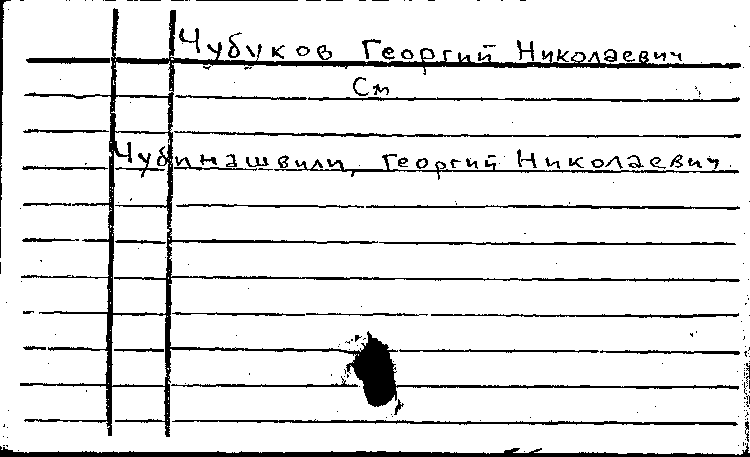 Чубуков Георгий Николаевич
См
Чубинашвили, Георгий Николаевич